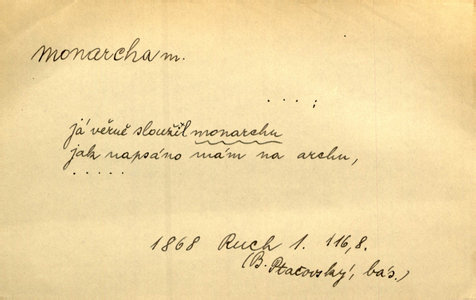 monarcha m.
. . . . ;
já věrně sloužil monarchu
jak napsáno mám na archu,
. . . . .
1868 Ruch 1. 116,8.
(B. Ptacovzký, bás.)